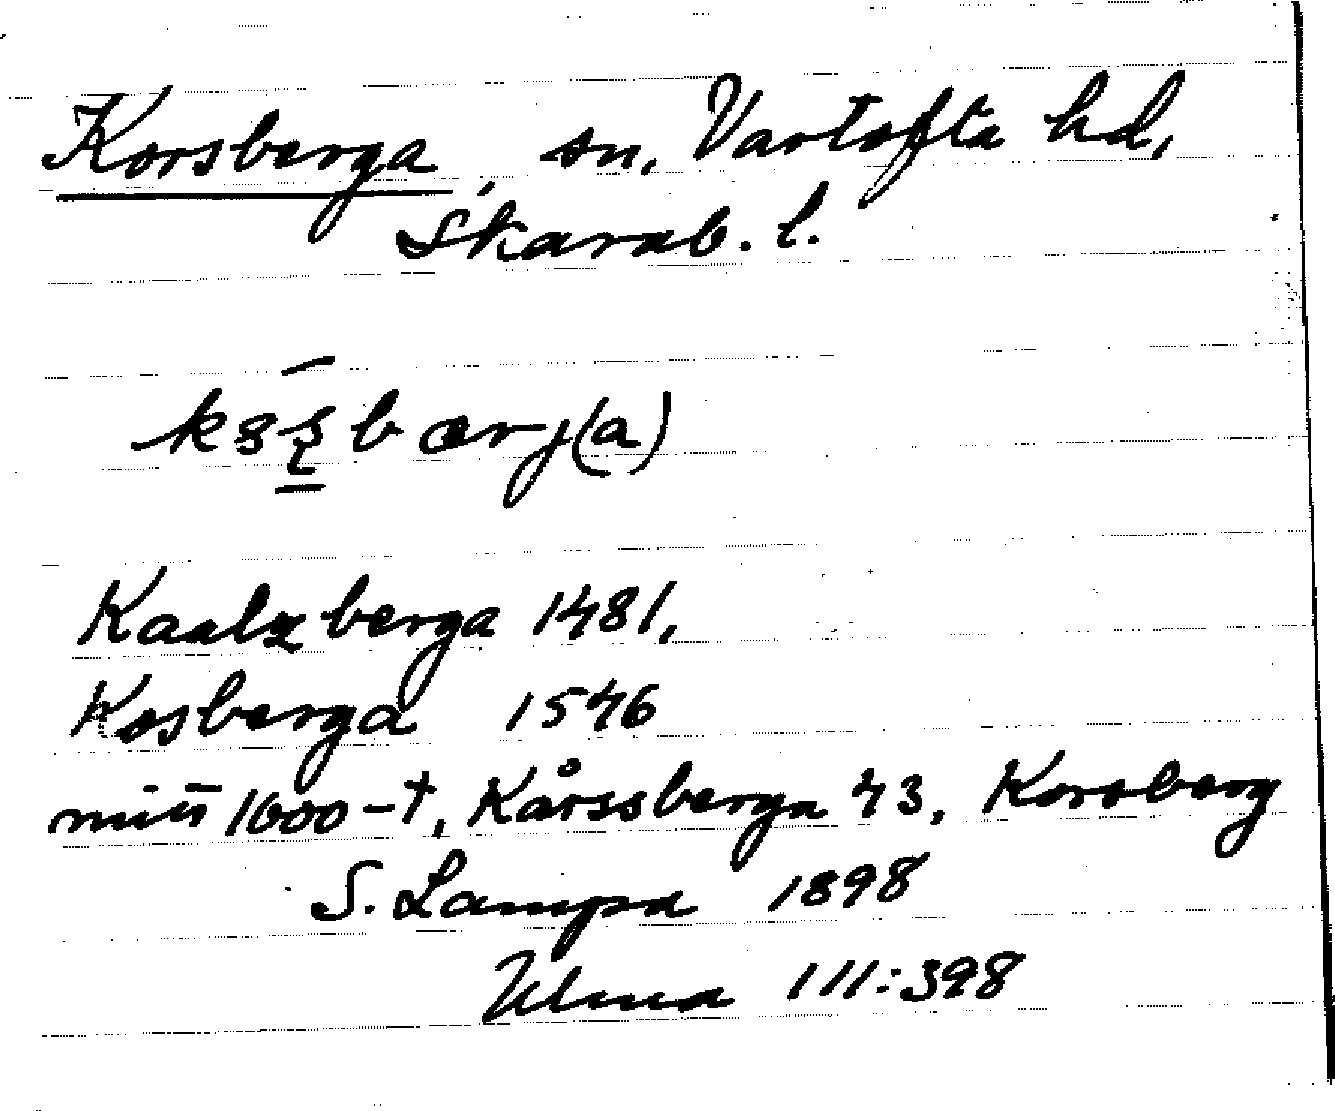 Korsberga, sn, Vartofta hd,
Skarab. l.
bærj(a)
Kaalxberga 1481,
Kosberga 1546
mitt 1600-t, Kårssberga 43, Korsberg
S. Lampa 1898
Ulma 111:398